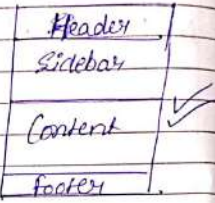 Header
Sidebar
Content
footer